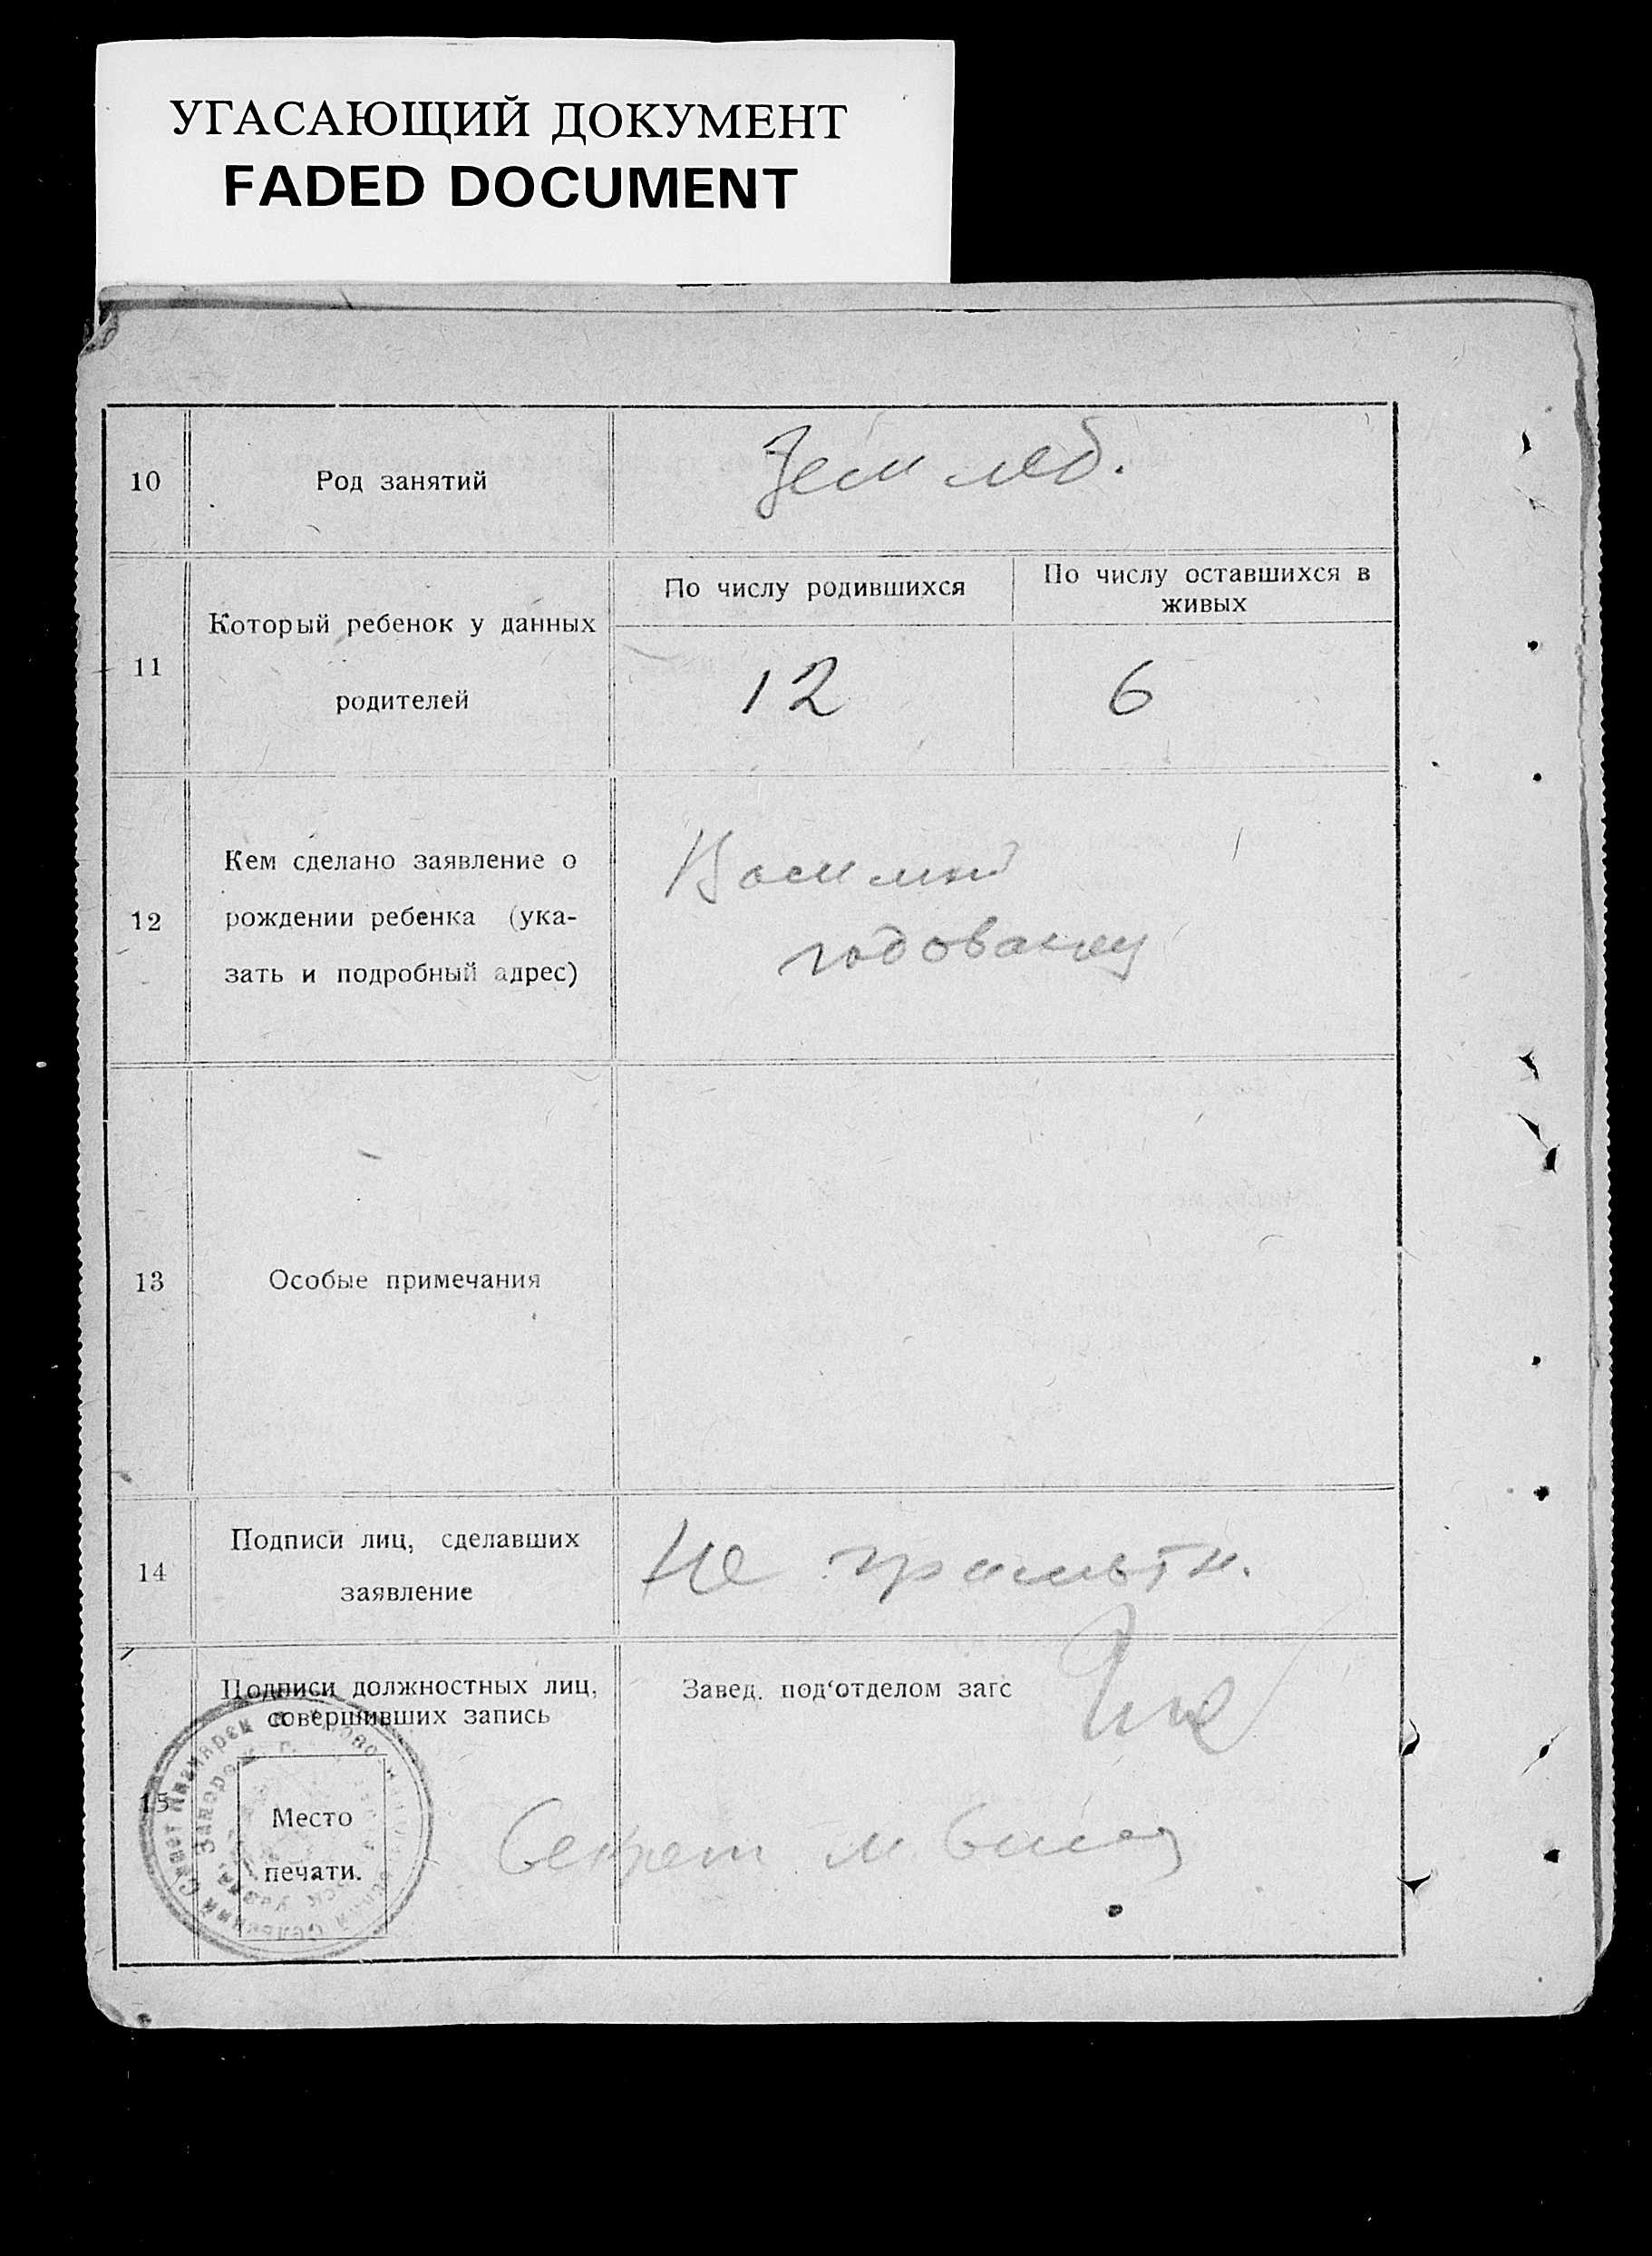 УГАСАЮЩИЙ ДОКУМЕНТ
FADED DOCUMENT
10
Род занятий
Землед.
11
Который ребенок у данных
родителей
По числу родившихся
По числу оставшихся в
живых
12
6
12
Кем сделано заявление о
рождении ребенка (ука-
зать и подробный адрес)
13
Особые примечания
14
Подписи лиц, сделавших
заявление
Не
15
Подписи должностных лиц,
совершивших запись
Завед. под‘отделом загс
Место
печати.
Секрет